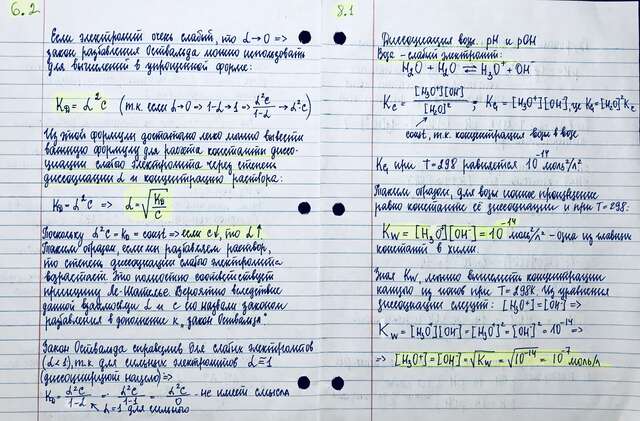 6.2
Если электролит очень слабый, то α→0 =>
закон разбавления Оствальда можно использовать
для вычислений в упрощенной форме:
K_D = α²C (т.к. если α→0 => 1-α→1 => α²C/(1-α) → α²C)
Из этой формулы достаточно легко можно вывести
важную формулу для расчёта константы диссо-
циации слабого электролита через степень
диссоциации α и концентрацию раствора:
K_D = α²C => α = √(K_D/C)
Поскольку α²C = K_D = const => если C↓, то α↑
Таким образом, если мы разбавляем раствор,
то степень диссоциации слабого электролита
возрастает. Это полностью соответствует
принципу Ле-Шателье. Вероятно вследствие
данной взаимосвязи α и C его назвали законом
разбавления в дополнение к „закон Оствальда".
Закон Оствальда справедлив для слабых электролитов
(α<1), т.к. для сильных электролитов α=1
(диссоциируют нацело) =>
K_D = α²C/(1-α) = α²C/(1-1) = α²C/0 - не имеет смысла
α=1 для сильного
8.1
Диссоциация воды. pH и pOH
Вода - слабый электролит:
H₂O + H₂O ⇄ H₃O⁺ + OH⁻
K_c = [H₃O⁺][OH⁻]/[H₂O]² ; K_d = [H₃O⁺][OH⁻], где K_d = [H₂O]²K_c
const, т.к. концентрация воды в воде
K_d при T=298 равняется 10⁻¹⁴ моль²/л²
Таким образом, для воды ионное произведение
равно константе её диссоциации и при T=298:
K_w = [H₃O⁺][OH⁻] = 10⁻¹⁴ моль²/л² - одна из главных
констант в химии.
Зная K_w, можно вычислить концентрации
каждого из ионов при T=298K. Из уравнения
диссоциации следует: [H₃O⁺] = [OH⁻] =>
K_w = [H₃O⁺][OH⁻] = [H₃O⁺]² = [OH⁻]² = 10⁻¹⁴ =>
=> [H₃O⁺] = [OH⁻] = √K_w = √10⁻¹⁴ = 10⁻⁷ моль/л